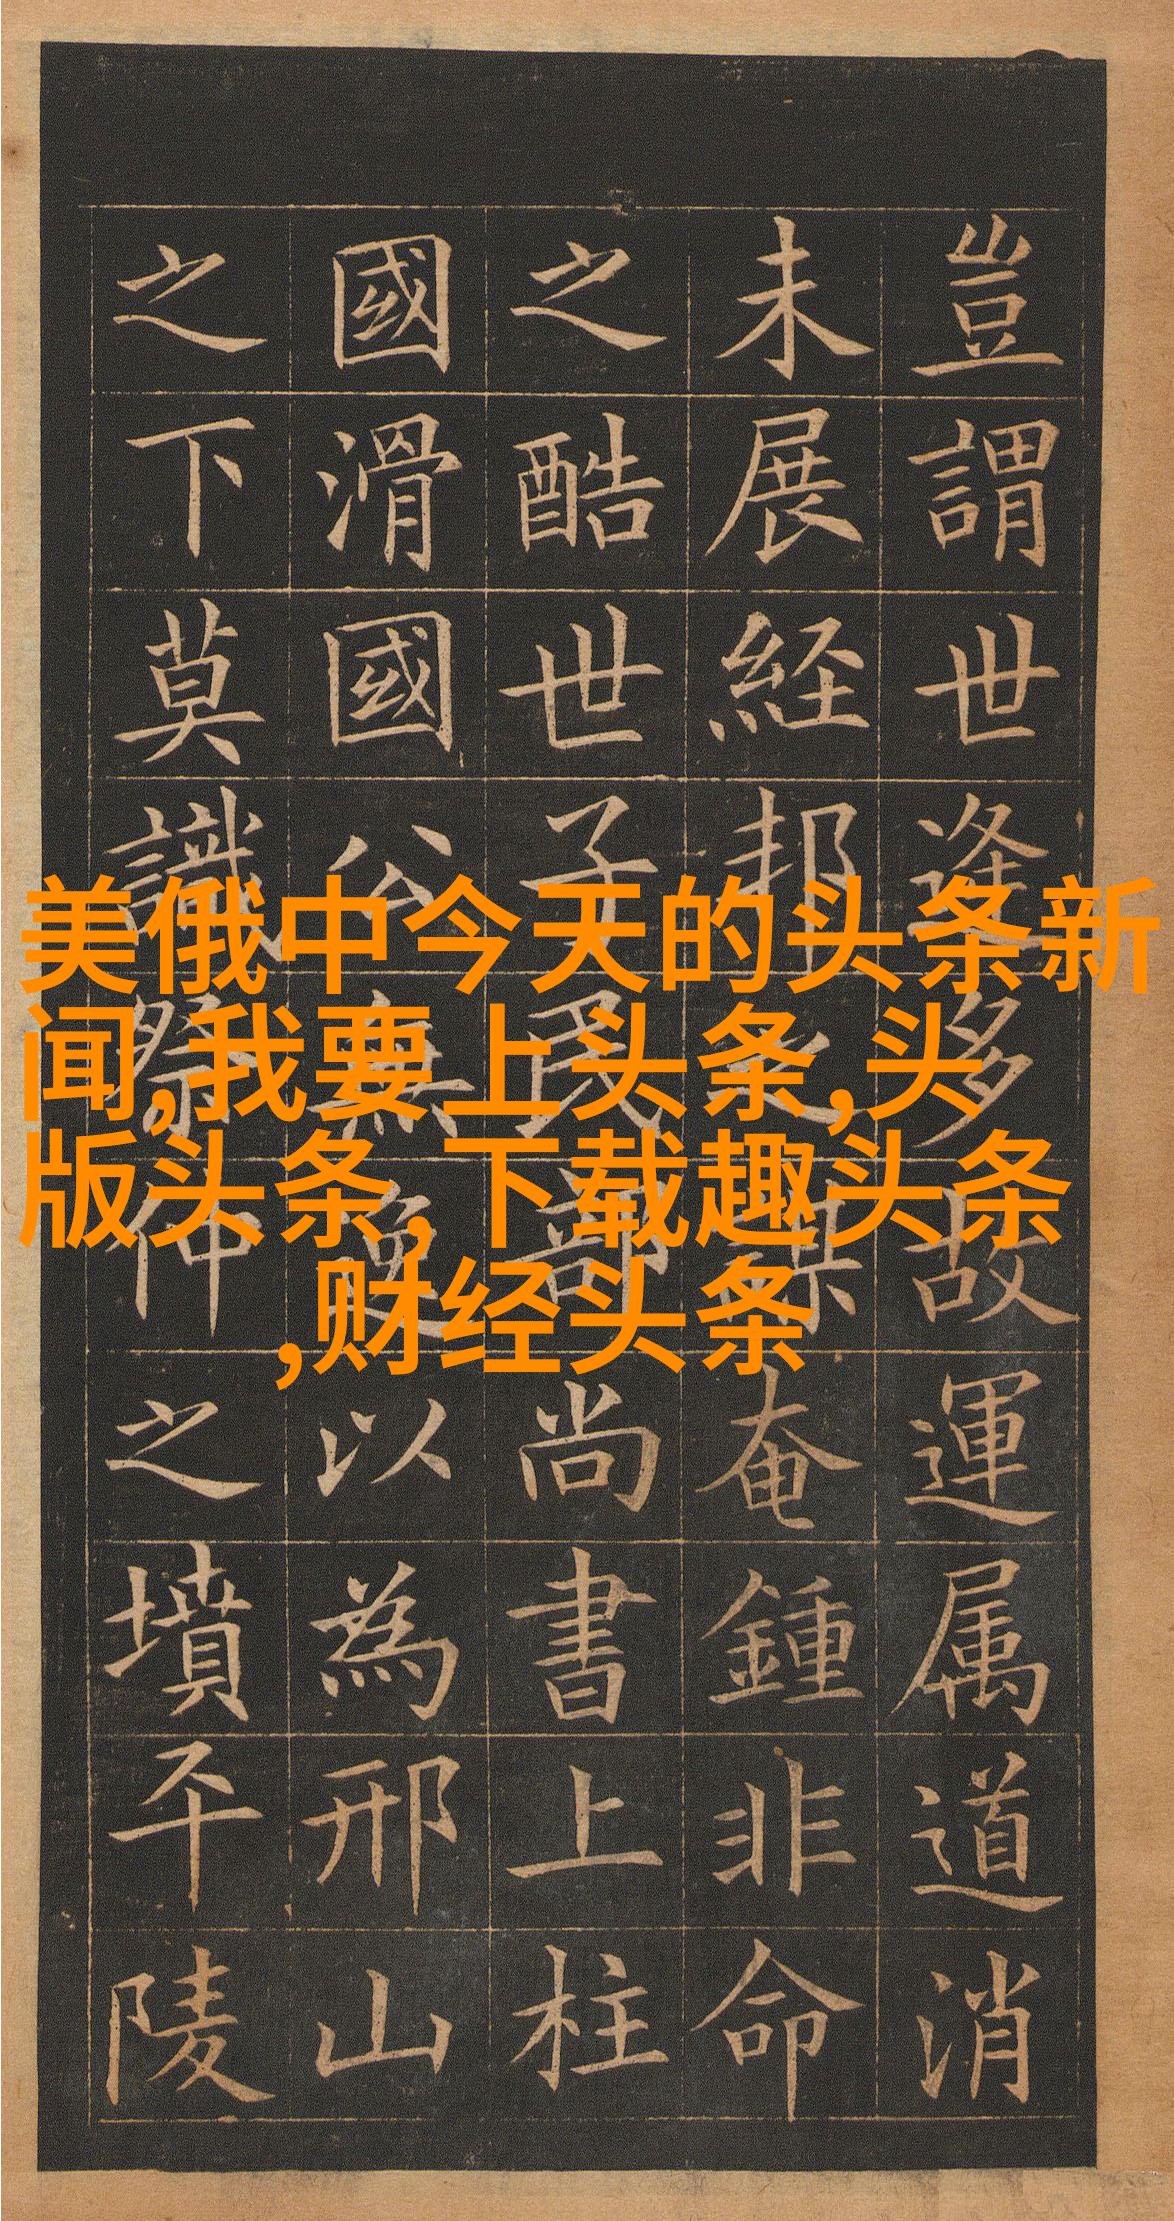 豈謂世逢多故運属道消
未展経邦之謀奄鍾非命
之酷世子民部尚書上柱
國滑國公無逸以為邢山
之下莫識祭仲之墳平陵
美俄中今天的头条新
闻,我要上头条,头
版头条,下载趣头条
,财经头条